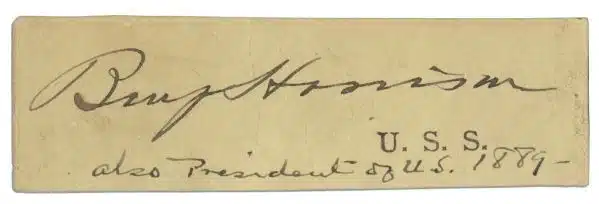 Benj Harrison
U. S. S.
also President of U.S. 1889-